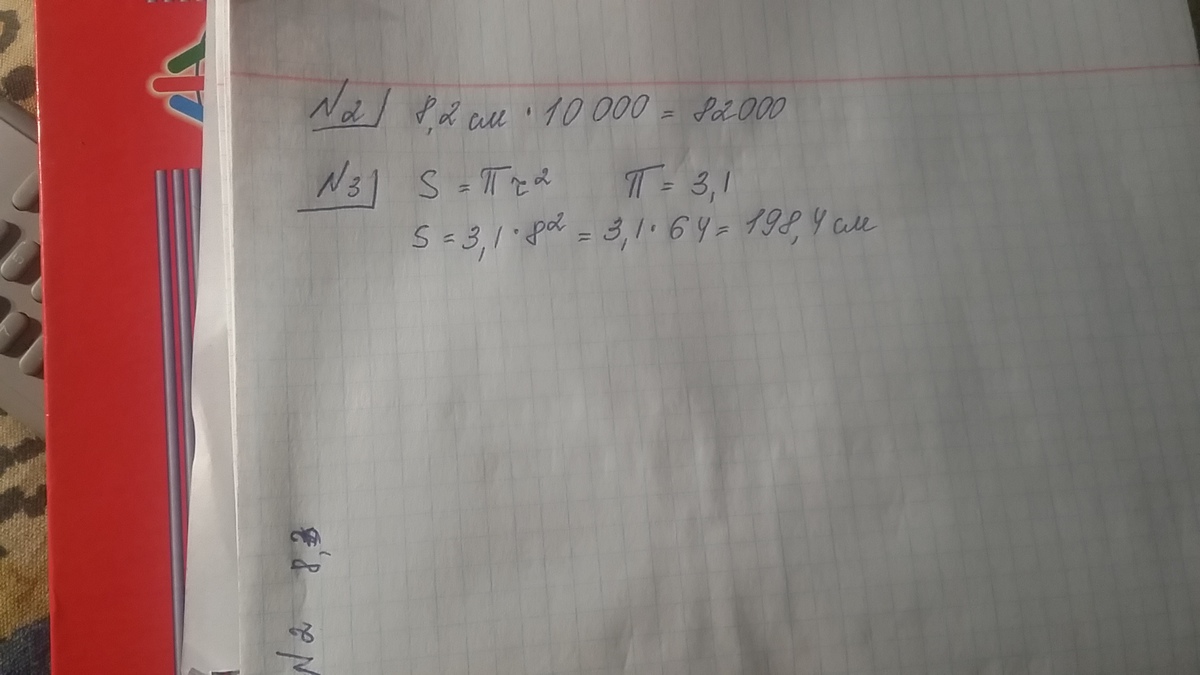 N2 8,2 см · 10 000 = 82000
N3 S = Пr² П = 3,1
S = 3,1 · 8² = 3,1 · 64 = 198,4 см
N 2 8,